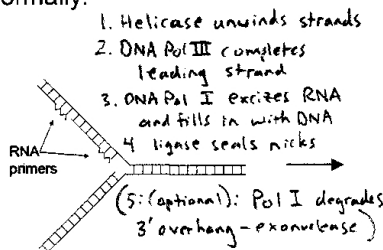 ormally.
1. Helicase unwinds strands
2. DNA Pol III completes
leading strand
3. DNA Pol I excizes RNA
and fills in with DNA
4 ligase seals nicks
RNA
primers
(5: (optional): Pol I degrades
3' overhang - exonuclease)